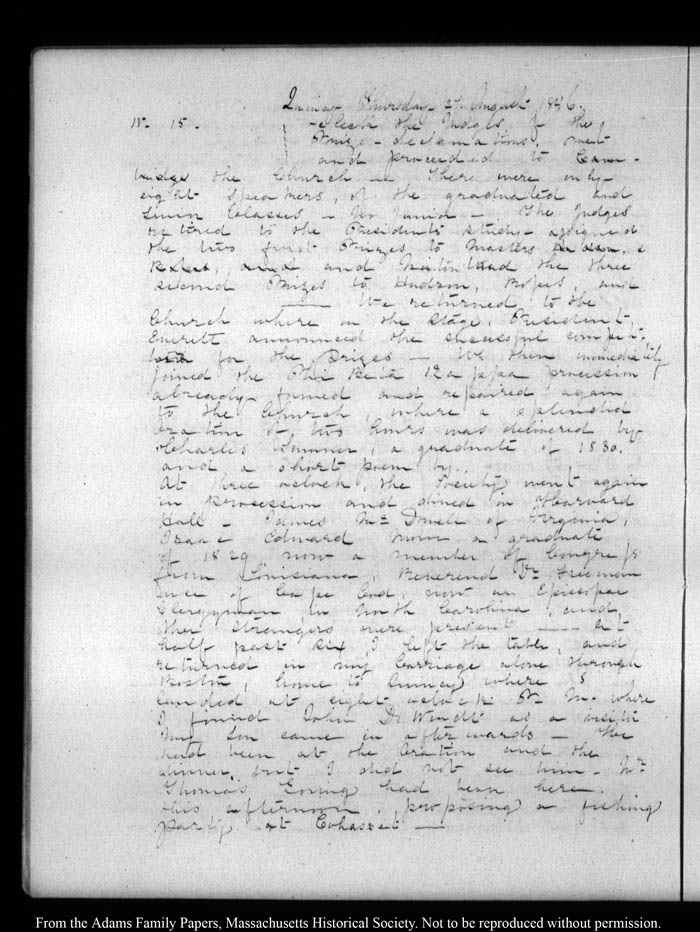 Quincy Thursday 27 August 1846.
IV. 15. -clock the Judges of the
Prize-declamations, met
and proceeded to Cam-
bridge the Church - There were only
eight Speakers, of the graduated and
Senior Classes - The Judges
retired to the Presidents study - assigned
the two first Prizes to Masters
and the three
second Prizes to Hudson, and
We returned to the
Church where on the stage, President
Everett announced the successful compet-
for the prizes - We then immediately
joined the Phi Beta Kappa procession
already formed and repaired again
to the Church, where a splendid
Oration of two hours was delivered by
Charles Sumner, a graduate of 1830.
and a short poem by..
At three oclock, the Society went again
in procession and dined in Harvard
Hall - James McDowell of Virginia,
Isaac Edward Morse a graduate
of 1829 now a member of Congress
from Louisiana, Reverend Dr. Freeman
once of Cape Cod, now an Episcopal
Clergyman in North Carolina, and
other strangers were present — At
half past six I left the table, and
returned in my Carriage alone through
Boston, home to Quincy where I
landed at eight oclock P. M. where
I found John DeWindt as a visitor
My Son came in afterwards - He
had been at the Oration and the
dinner, but I did not see him - Mr
Thomas Loring had been here
this afternoon, proposing a fishing
party at Cohasset —
From the Adams Family Papers, Massachusetts Historical Society. Not to be reproduced without permission.